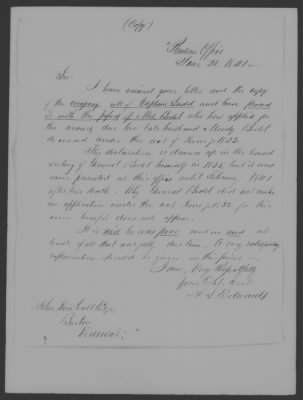 (Copy)
Pension Office
Jan. 21. 1841.
Sir
I have received your letter and the copy
of the company roll of Captain Ladd and have placed
it with the papers of Mrs. Bedel who has applied for
the arrears due her late husband Moody Bedel
deceased under the act of June 7. 1832.
The declaration is drawn up in the hand
writing of General Bedel himself in 1832, but it was
never presented at this office until
after his death. Why General Bedel did not make
an application under the act June 7. 1832 for his
own benefit does not appear.
It is said he was poor and in need at
least of all that was justly due him. A very satisfactory
explanation should be given on this point.
I am, Very Respectfully
your Obt. Servt.
J. L. Edwards
John Kimball Esq.
Barton
Vermont